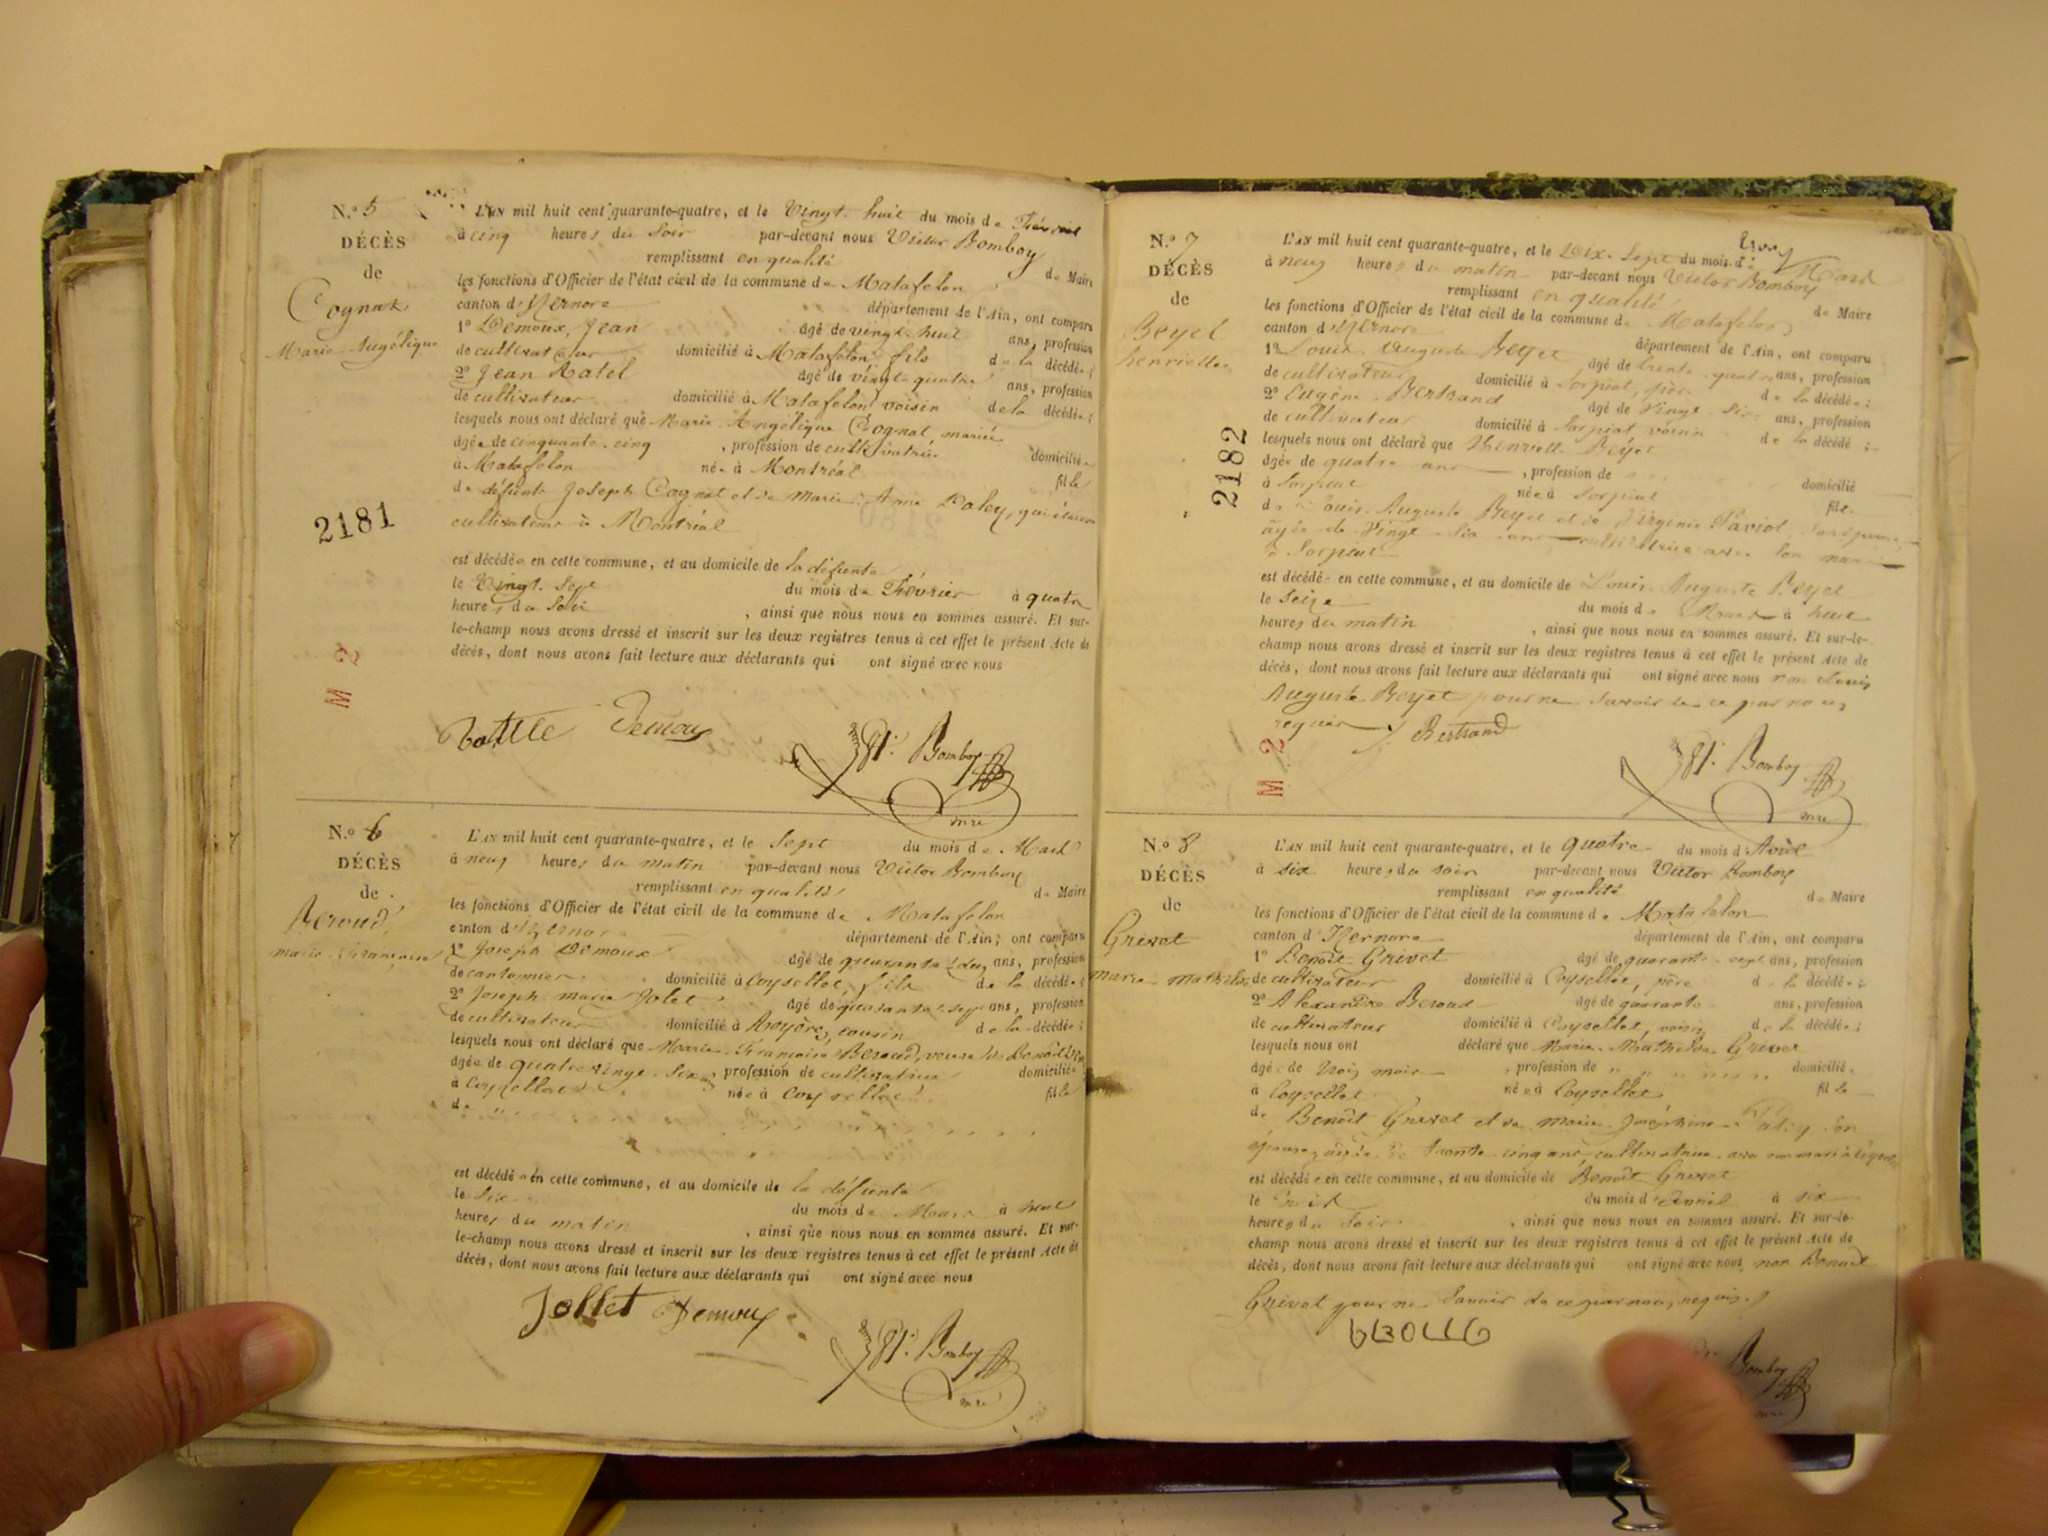 N.º 5
DÉCÈS
de
Cognat
Marie Angélique
2181
M 2
L'AN mil huit cent quarante-quatre, et le Vingt huit du mois de Février
à cinq heures du Soir par-devant nous Victor Bomboy
remplissant en qualité de Maire
les fonctions d'Officier de l'état civil de la commune de Matafelon
canton d'Izernore département de l'Ain, ont comparu
1º Demoux, Jean âgé de vingt huit ans, profession
de cultivateur domicilié à Matafelon, fils de la décédée ;
2º Jean Ratel âgé de vingt quatre ans, profession
de cultivateur domicilié à Matafelon, voisin de la décédée ;
lesquels nous ont déclaré que Marie Angélique Cognat, mariée
âgée de cinquante-cinq , profession de cultivatrice domiciliée
à Matafelon née à Montréal fille
de défunts Joseph Cognat et de Marie Anne qui étaient
cultivateurs à Montréal
est décédée en cette commune, et au domicile de la défunte
le Vingt Sept du mois de Février à quatre
heures du Soir , ainsi que nous nous en sommes assuré. Et sur-
le-champ nous avons dressé et inscrit sur les deux registres tenus à cet effet le présent Acte de
décès, dont nous avons fait lecture aux déclarants qui ont signé avec nous
Demoux Bomboy
mre
N.º 6
DÉCÈS
de
Beroud
marie françoise
L'AN mil huit cent quarante-quatre, et le Sept du mois de Mars
à neuf heures du matin par-devant nous Victor Bomboy
remplissant en qualité de Maire
les fonctions d'Officier de l'état civil de la commune de Matafelon
canton d'Izernore département de l'Ain, ont comparu
1º Joseph Demoux âgé de quarante ans, profession
de cantonnier domicilié à Coysellet, fils de la décédée ;
2º Joseph marie Jolet âgé de quarante sept ans, profession
de cultivateur domicilié à cousin de la décédée ;
lesquels nous ont déclaré que Marie Françoise Beroud, veuve de Benoît
âgée de quatre vingt six , profession de cultivatrice domiciliée
à Coysellet née à Coysellet fille
de
est décédée en cette commune, et au domicile de la défunte
le Six du mois de Mars à huit
heures du matin , ainsi que nous nous en sommes assuré. Et sur-
le-champ nous avons dressé et inscrit sur les deux registres tenus à cet effet le présent Acte de
décès, dont nous avons fait lecture aux déclarants qui ont signé avec nous
Jollet Demoux
Bomboy
mre
N.º 7
DÉCÈS
de
Beyet
henriette
2182
M 2
L'AN mil huit cent quarante-quatre, et le Dix-Sept du mois de Mars
à neuf heures du matin par-devant nous Victor Bomboy
remplissant en qualité de Maire
les fonctions d'Officier de l'état civil de la commune de Matafelon
canton d'Izernore département de l'Ain, ont comparu
1º Louis Auguste Beyet âgé de trente-quatre ans, profession
de cultivateur domicilié à Sorpiat, père de la décédée ;
2º Eugène Bertrand âgé de Vingt-Six ans, profession
de cultivateur domicilié à Sorpiat, voisin de la décédée ;
lesquels nous ont déclaré que Henriette Beyet
âgée de quatre ans , profession de domicilié
à Sorpiat née à Sorpiat fille
de Louis Auguste Beyet et de Virginie
âgée de Vingt-Six ans cultivatrice avec Son mari
à Sorpiat
est décédée en cette commune, et au domicile de Louis Auguste Beyet
le Seize du mois de Mars à huit
heures du matin , ainsi que nous nous en sommes assuré. Et sur-le-
champ nous avons dressé et inscrit sur les deux registres tenus à cet effet le présent Acte de
décès, dont nous avons fait lecture aux déclarants qui ont signé avec nous non Louis
Auguste Beyet pour ne Savoir de ce par nous
requis Bertrand
Bomboy
mre
N.º 8
DÉCÈS
de
Grivet
marie mathilde
L'AN mil huit cent quarante-quatre, et le quatre du mois d'Avril
à six heures du soir par-devant nous Victor Bomboy
remplissant en qualité de Maire
les fonctions d'Officier de l'état civil de la commune de Matafelon
canton d'Izernore département de l'Ain, ont comparu
1º Benoît Grivet âgé de quarante-sept ans, profession
de cultivateur domicilié à Coysellet, père de la décédée ;
2º Alexandre Beroud âgé de quarante ans, profession
de cultivateur domicilié à Coysellet, voisin de la décédée ;
lesquels nous ont déclaré que Marie Mathilde Grivet
âgée de trois mois , profession de domiciliée
à Coysellet née à Coysellet fille
de Benoît Grivet et de Marie Joséphine son
épouse, âgée de trente-cinq ans, cultivatrice avec son mari à
est décédée en cette commune, et au domicile de Benoît Grivet
le trois du mois d'Avril à six
heures du Soir , ainsi que nous nous en sommes assuré. Et sur-le-
champ nous avons dressé et inscrit sur les deux registres tenus à cet effet le présent Acte de
décès, dont nous avons fait lecture aux déclarants qui ont signé avec nous non Benoît
Grivet pour ne Savoir de ce par nous requis
Bomboy
mre